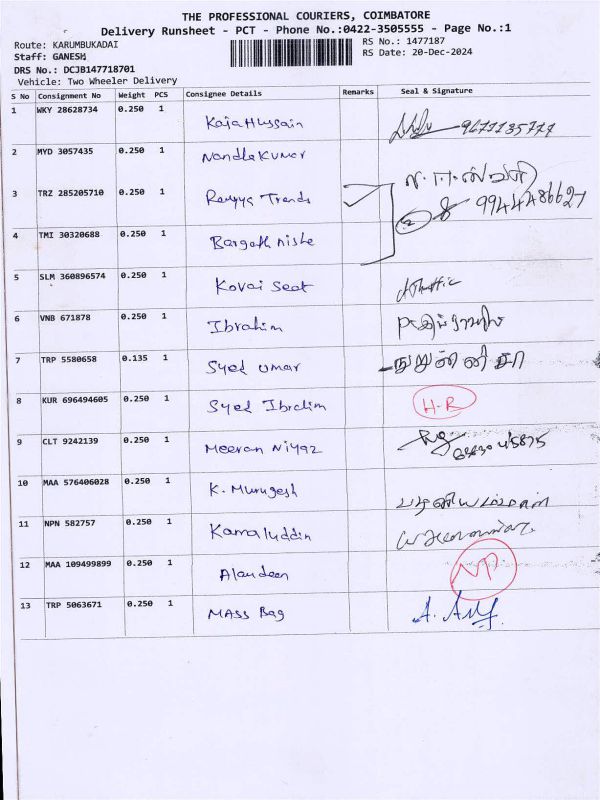 THE PROFESSIONAL COURIERS, COIMBATORE
Delivery Runsheet - PCT - Phone No.:0422-3505555 - Page No.:1
Route: KARUMBUKADAI
RS No.: 1477187
Staff: GANESH
RS Date: 20-Dec-2024
DRS No.: DCJB147718701
Vehicle: Two Wheeler Delivery
S No Consignment No Weight PCS Consignee Details Remarks Seal & Signature
1 WKY 28628734 0.250 1 Kaja Hussain
2 MYD 3057435 0.250 1 Nandha Kumar
3 TRZ 285205710 0.250 1 Ramya Trends 9944486627
4 TMI 30320688 0.250 1 Bargath nishe
5 SLM 360896574 0.250 1 Kovai Seat
6 VNB 671878 0.250 1 Ibrahim
7 TRP 5580658 0.135 1 Syed umar
8 KUR 696494605 0.250 1 Syed Ibrahim H-R
9 CLT 9242139 0.250 1 Meeran Niyaz
10 MAA 576406028 0.250 1 K. Murugesh
11 NPN 582757 0.250 1 Kamaluddin
12 MAA 109499899 0.250 1 Alaudeen NP
13 TRP 5063671 0.250 1 MASS Bag